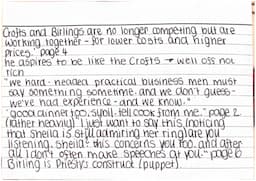 Crofts and Birlings are no longer competing but are
working together - for lower costs and higher
prices." page 4
he aspires to be like the Crofts → well oss not
rich
"we hard-headed practical business men must
say something sometime. and we don't guess-
we've had experience - and we know."
"good dinner too, sybil. tell cook from me." page 2
(rather heavily) I just want to say this, (noticing
that Sheila is still admiring her ring) are you
listening, Sheila? this concerns you too. and after
all I don't often make speeches at you." page 6
Birling is Priestly's construct (puppet).